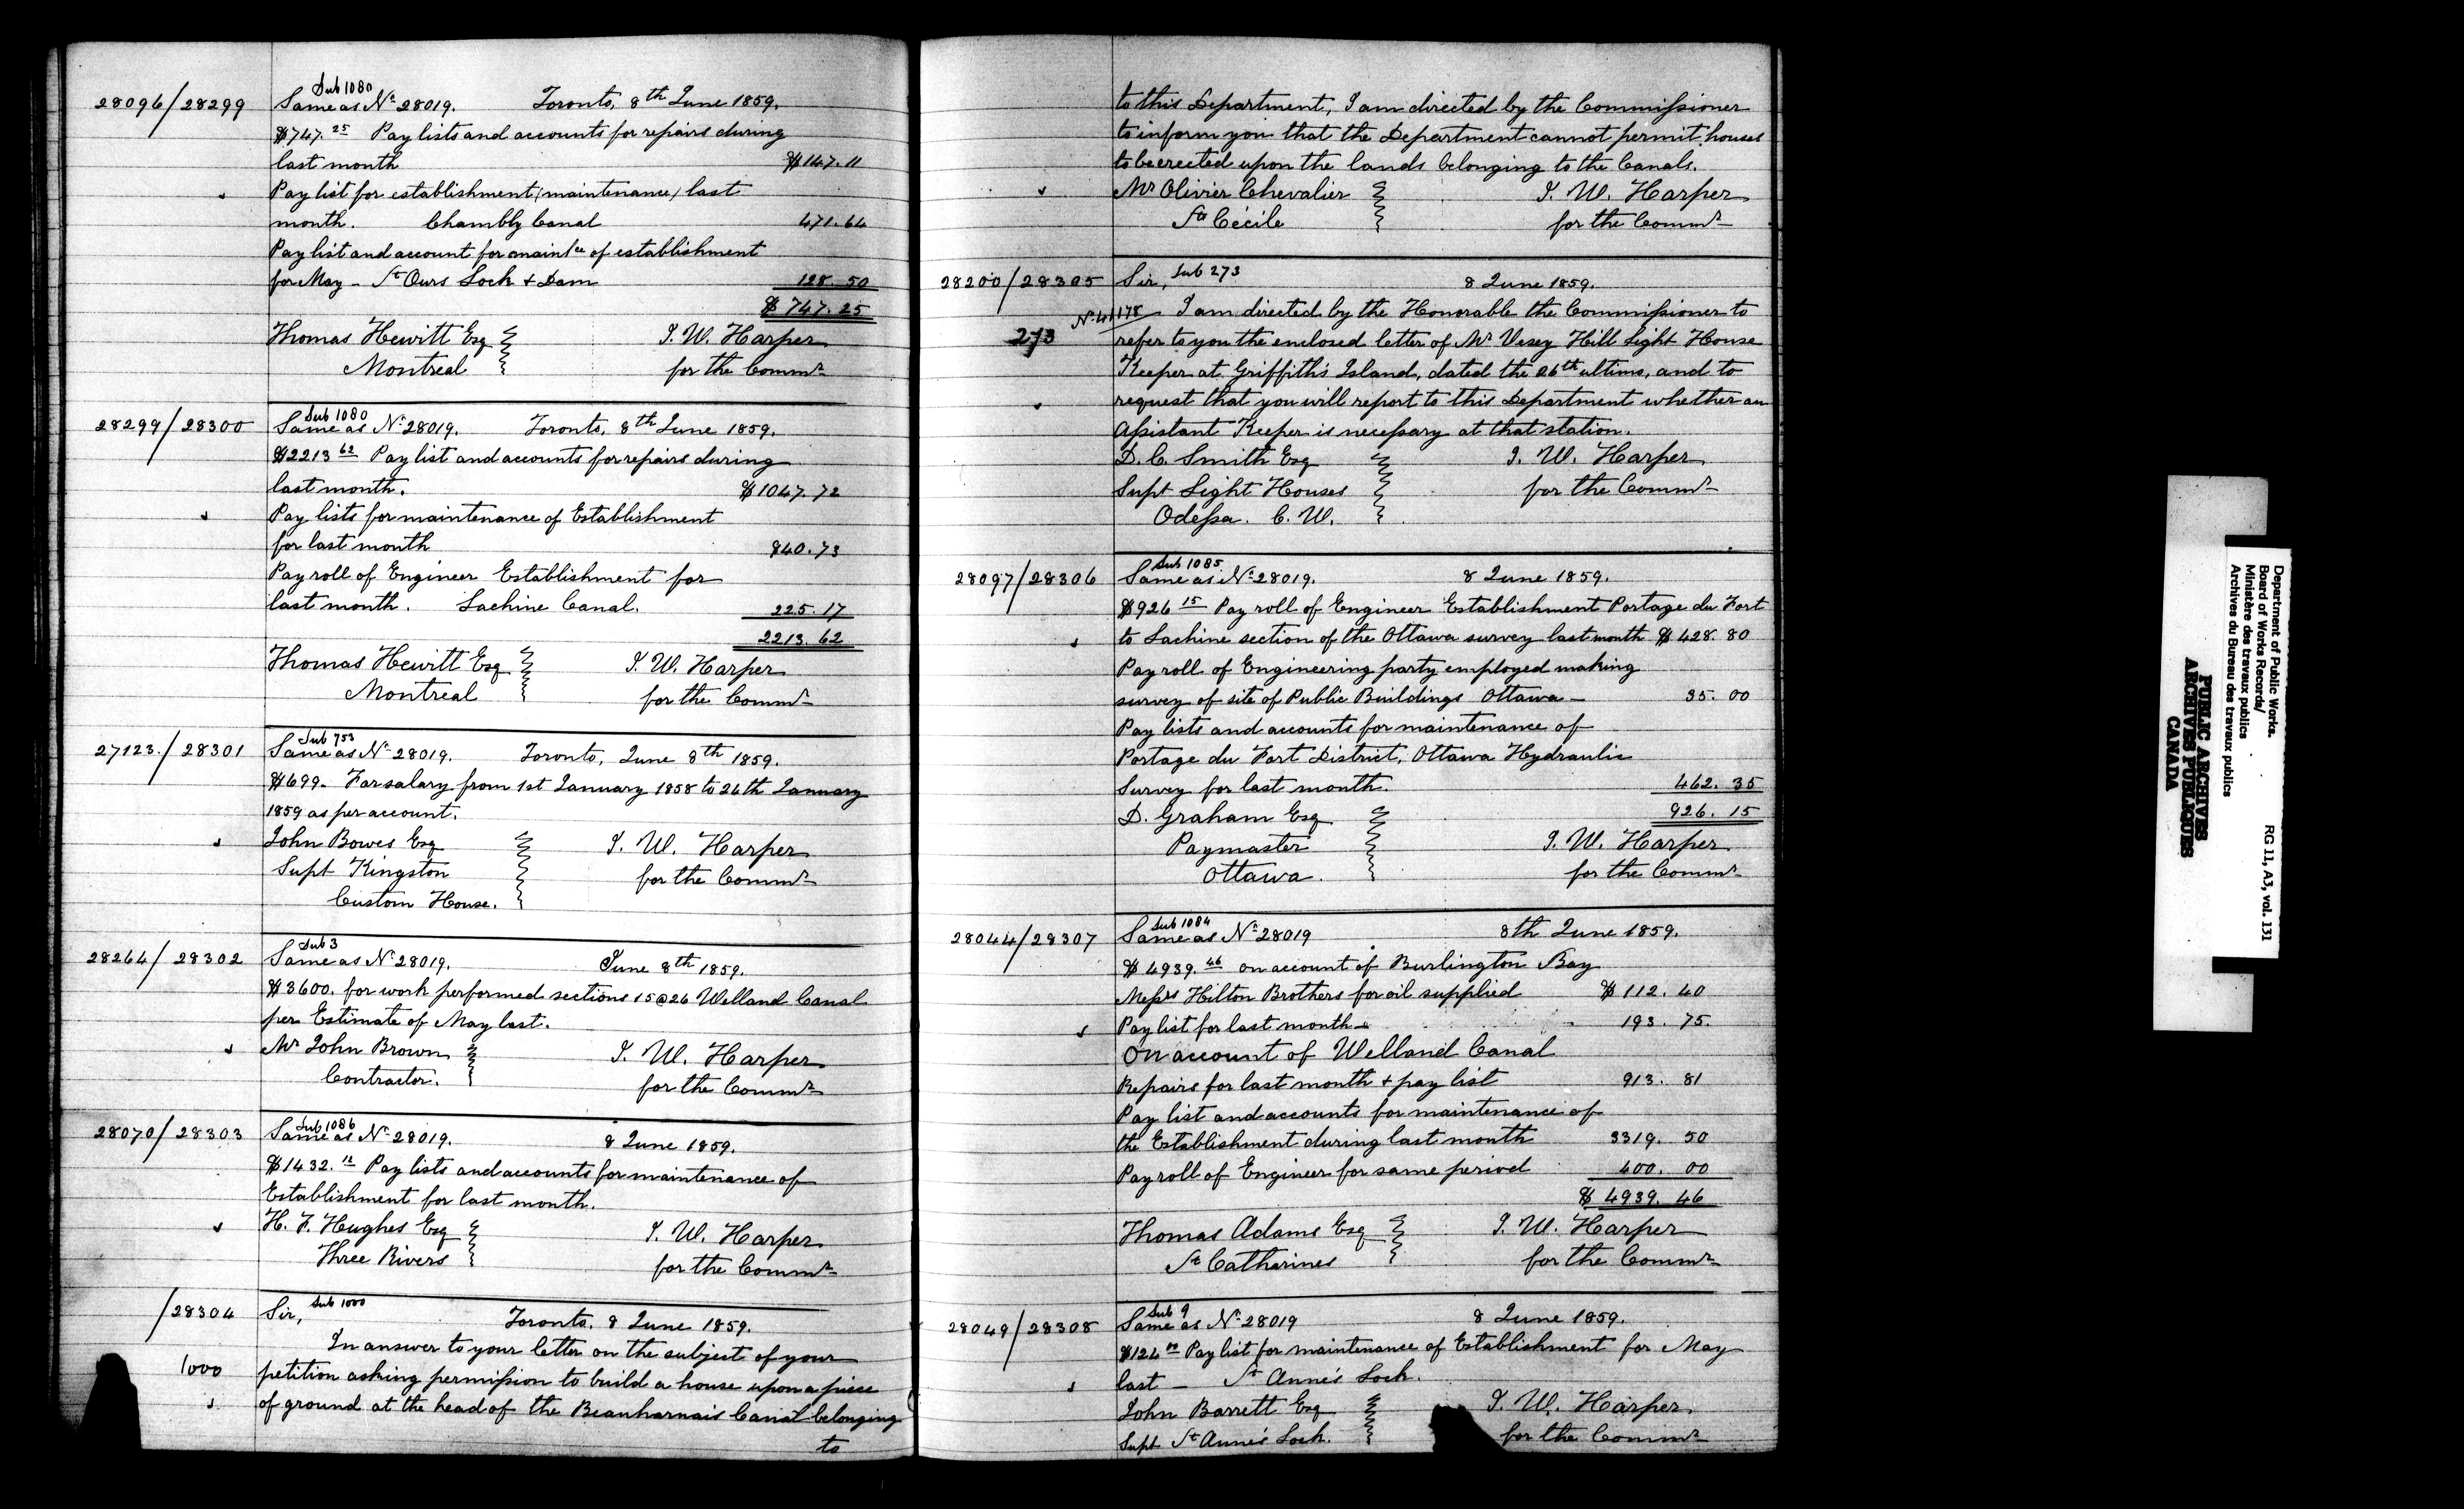 Sub 1080
28096/28299 Same as No 28019. Toronto, 8th June 1859.
$747.25 Pay lists and accounts for repairs during
last month $147.11
Pay list for establishment (maintenance) last
month. Chambly Canal 471.64
Pay list and account for maintce of establishment
for May - St Ours Lock + Dam 128.50
$747.25
Thomas Hewitt Esq J. W. Harper
Montreal for the Commr
Sub 1080
28299/28300 Same as No 28019. Toronto, 8th June 1859.
$2213 62 Pay list and accounts for repairs during
last month. $1047.72
Pay lists for maintenance of Establishment
for last month 940.73
Pay roll of Engineer Establishment for
last month. Lachine Canal. 225.17
2213.62
Thomas Hewitt Esq J. W. Harper
Montreal for the Commr
Sub 753
27123/28301 Same as No 28019. Toronto, June 8th 1859.
$699. For salary from 1st January 1858 to 26th January
1859 as per account.
John Bowes Esq J. W. Harper
Supt Kingston for the Commr
Custom House.
Sub 3
28264/28302 Same as No 28019. June 8th 1859.
$3600. for work performed sections 15@26 Welland Canal
per Estimate of May last.
Mr John Brown J. W. Harper
Contractor. for the Commr
Sub 1086
28070/28303 Same as No 28019. 8 June 1859.
$1432. 12 Pay lists and accounts for maintenance of
Establishment for last month.
H. F. Hughes Esq J. W. Harper
Three Rivers for the Commr
/28304 Sir, Sub 1000 Toronto, 8 June 1859.
In answer to your letter on the subject of your
1000 petition asking permission to build a house upon a piece
of ground at the head of the Beauharnais Canal belonging
to
to this Department, I am directed by the Commissioner
to inform you that the Department cannot permit houses
to be erected upon the lands belonging to the Canals.
Mr Olivier Chevalier J. W. Harper
Ste Cécile for the Commr
28200/28305 Sir, Sub 273 8 June 1859.
No 41178 I am directed by the Honorable the Commissioner to
273 refer to you the enclosed letter of Mr Vesey Hill Light House
Keeper at Griffith's Island, dated the 26th ultimo, and to
request that you will report to this Department whether an
Assistant Keeper is necessary at that station.
D. C. Smith Esq J. W. Harper
Supt Light Houses for the Commr
Odessa. C. W.
Sub 1085
28097/28306 Same as No 28019. 8 June 1859.
$926 15 Pay roll of Engineer Establishment Portage du Fort
to Lachine section of the Ottawa survey last month $428.80
Pay roll of Engineering party employed making
survey of site of Public Buildings Ottawa - 35.00
Pay lists and accounts for maintenance of
Portage du Fort District, Ottawa Hydraulic
Survey for last month. 462.35
D. Graham Esq 926.15
Paymaster J. W. Harper
Ottawa. for the Commr
Sub 1084
28044/28307 Same as No 28019 8th June 1859.
$4939. 46 on account of Burlington Bay
Messrs Hilton Brothers for oil supplied $112.40
Pay list for last month - 193.75.
On account of Welland Canal
Repairs for last month + pay list 913.81
Pay list and accounts for maintenance of
the Establishment during last month 3319.50
Pay roll of Engineer for same period 400.00
$4939.46
Thomas Adams Esq J. W. Harper
St Catharines for the Commr
Sub 9
28049/28308 Same as No 28019 8 June 1859.
$124 00 Pay list for maintenance of Establishment for May
last - St Anne's Lock.
John Barrett Esq J. W. Harper.
Supt St Anne's Lock. for the Commr
Department of Public Works.
Board of Works Records/
Ministère des travaux publics
Archives du Bureau des travaux publics
RG 11, A3, vol. 131
PUBLIC ARCHIVES
ARCHIVES PUBLIQUES
CANADA